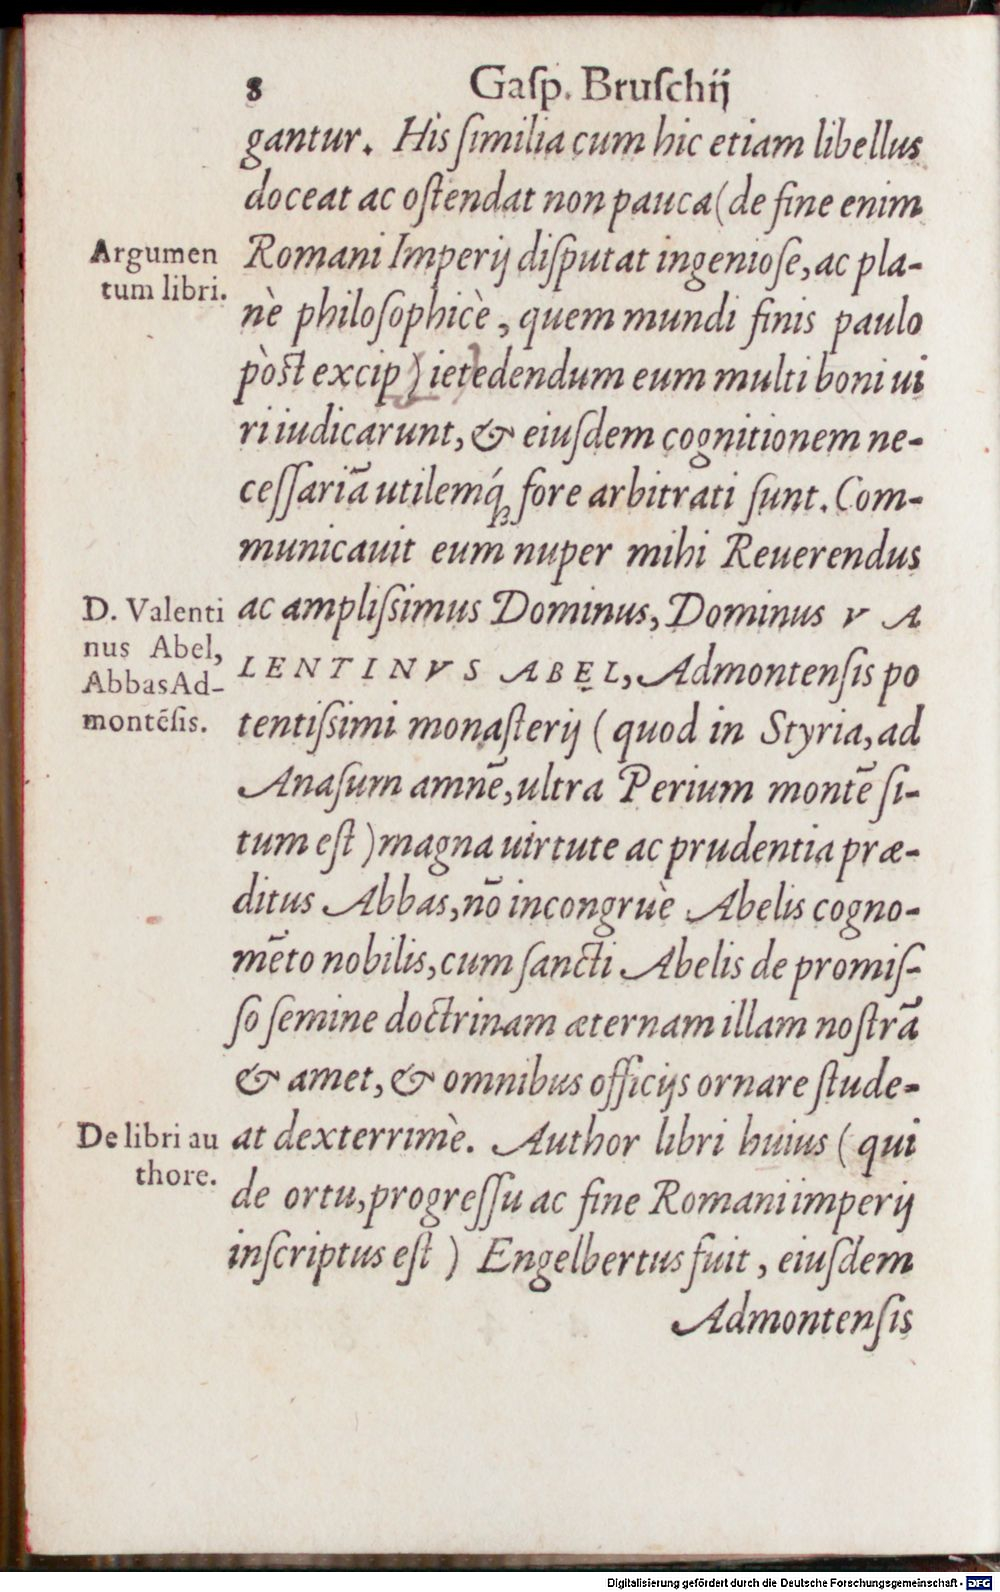 8 Gaſp. Bruſchij
gantur. His ſimilia cum hic etiam libellus
doceat ac oſtendat non pauca (de fine enim
Argumen
tum libri.
Romani Imperij diſputat ingenioſe, ac pla-
nè philoſophicè, quem mundi finis paulo
pòst excip) iet edendum eum multi boni ui
ri iudicarunt, & eiuſdem cognitionem ne-
ceſſariā utilemq́ꝫ fore arbitrati ſunt. Com-
municauit eum nuper mihi Reuerendus
D. Valenti
nus Abel,
Abbas Ad-
montēſis.
ac ampliſsimus Dominus, Dominus V A
LENTINVS ABEL, Admontenſis po
tentiſsimi monaſterij (quod in Styria, ad
Anaſum amnē, ultra Perium montē ſi-
tum eſt) magna uirtute ac prudentia præ-
ditus Abbas, nō incongruè Abelis cogno-
mēto nobilis, cum ſancti Abelis de promiſ-
ſo ſemine doctrinam æternam illam noſtrā
& amet, & omnibus officijs ornare ſtude-
De libri au
thore.
at dexterrimè. Author libri huius (qui
de ortu, progreſſu ac fine Romani imperij
inſcriptus eſt) Engelbertus fuit, eiuſdem
Admontenſis
Digitalisierung gefördert durch die Deutsche Forschungsgemeinschaft - DFG